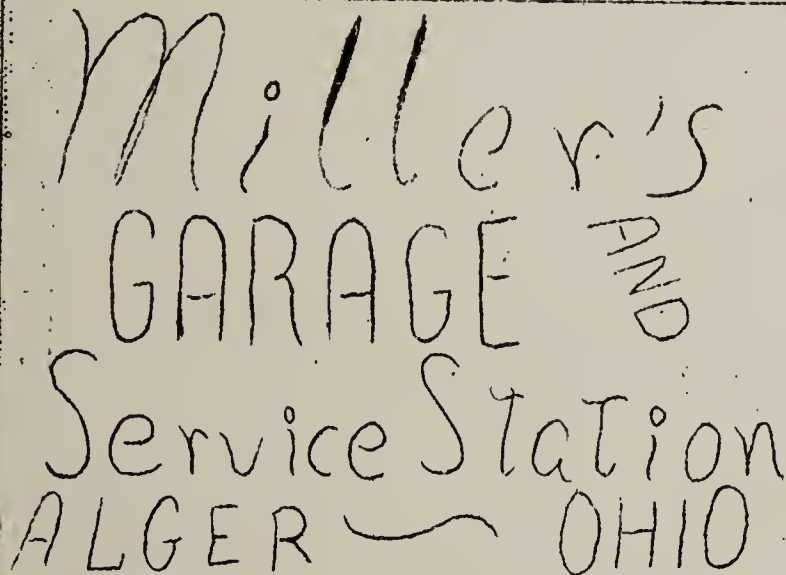 Miller's
GARAGE AND
Service Station
ALGER ~ OHIO